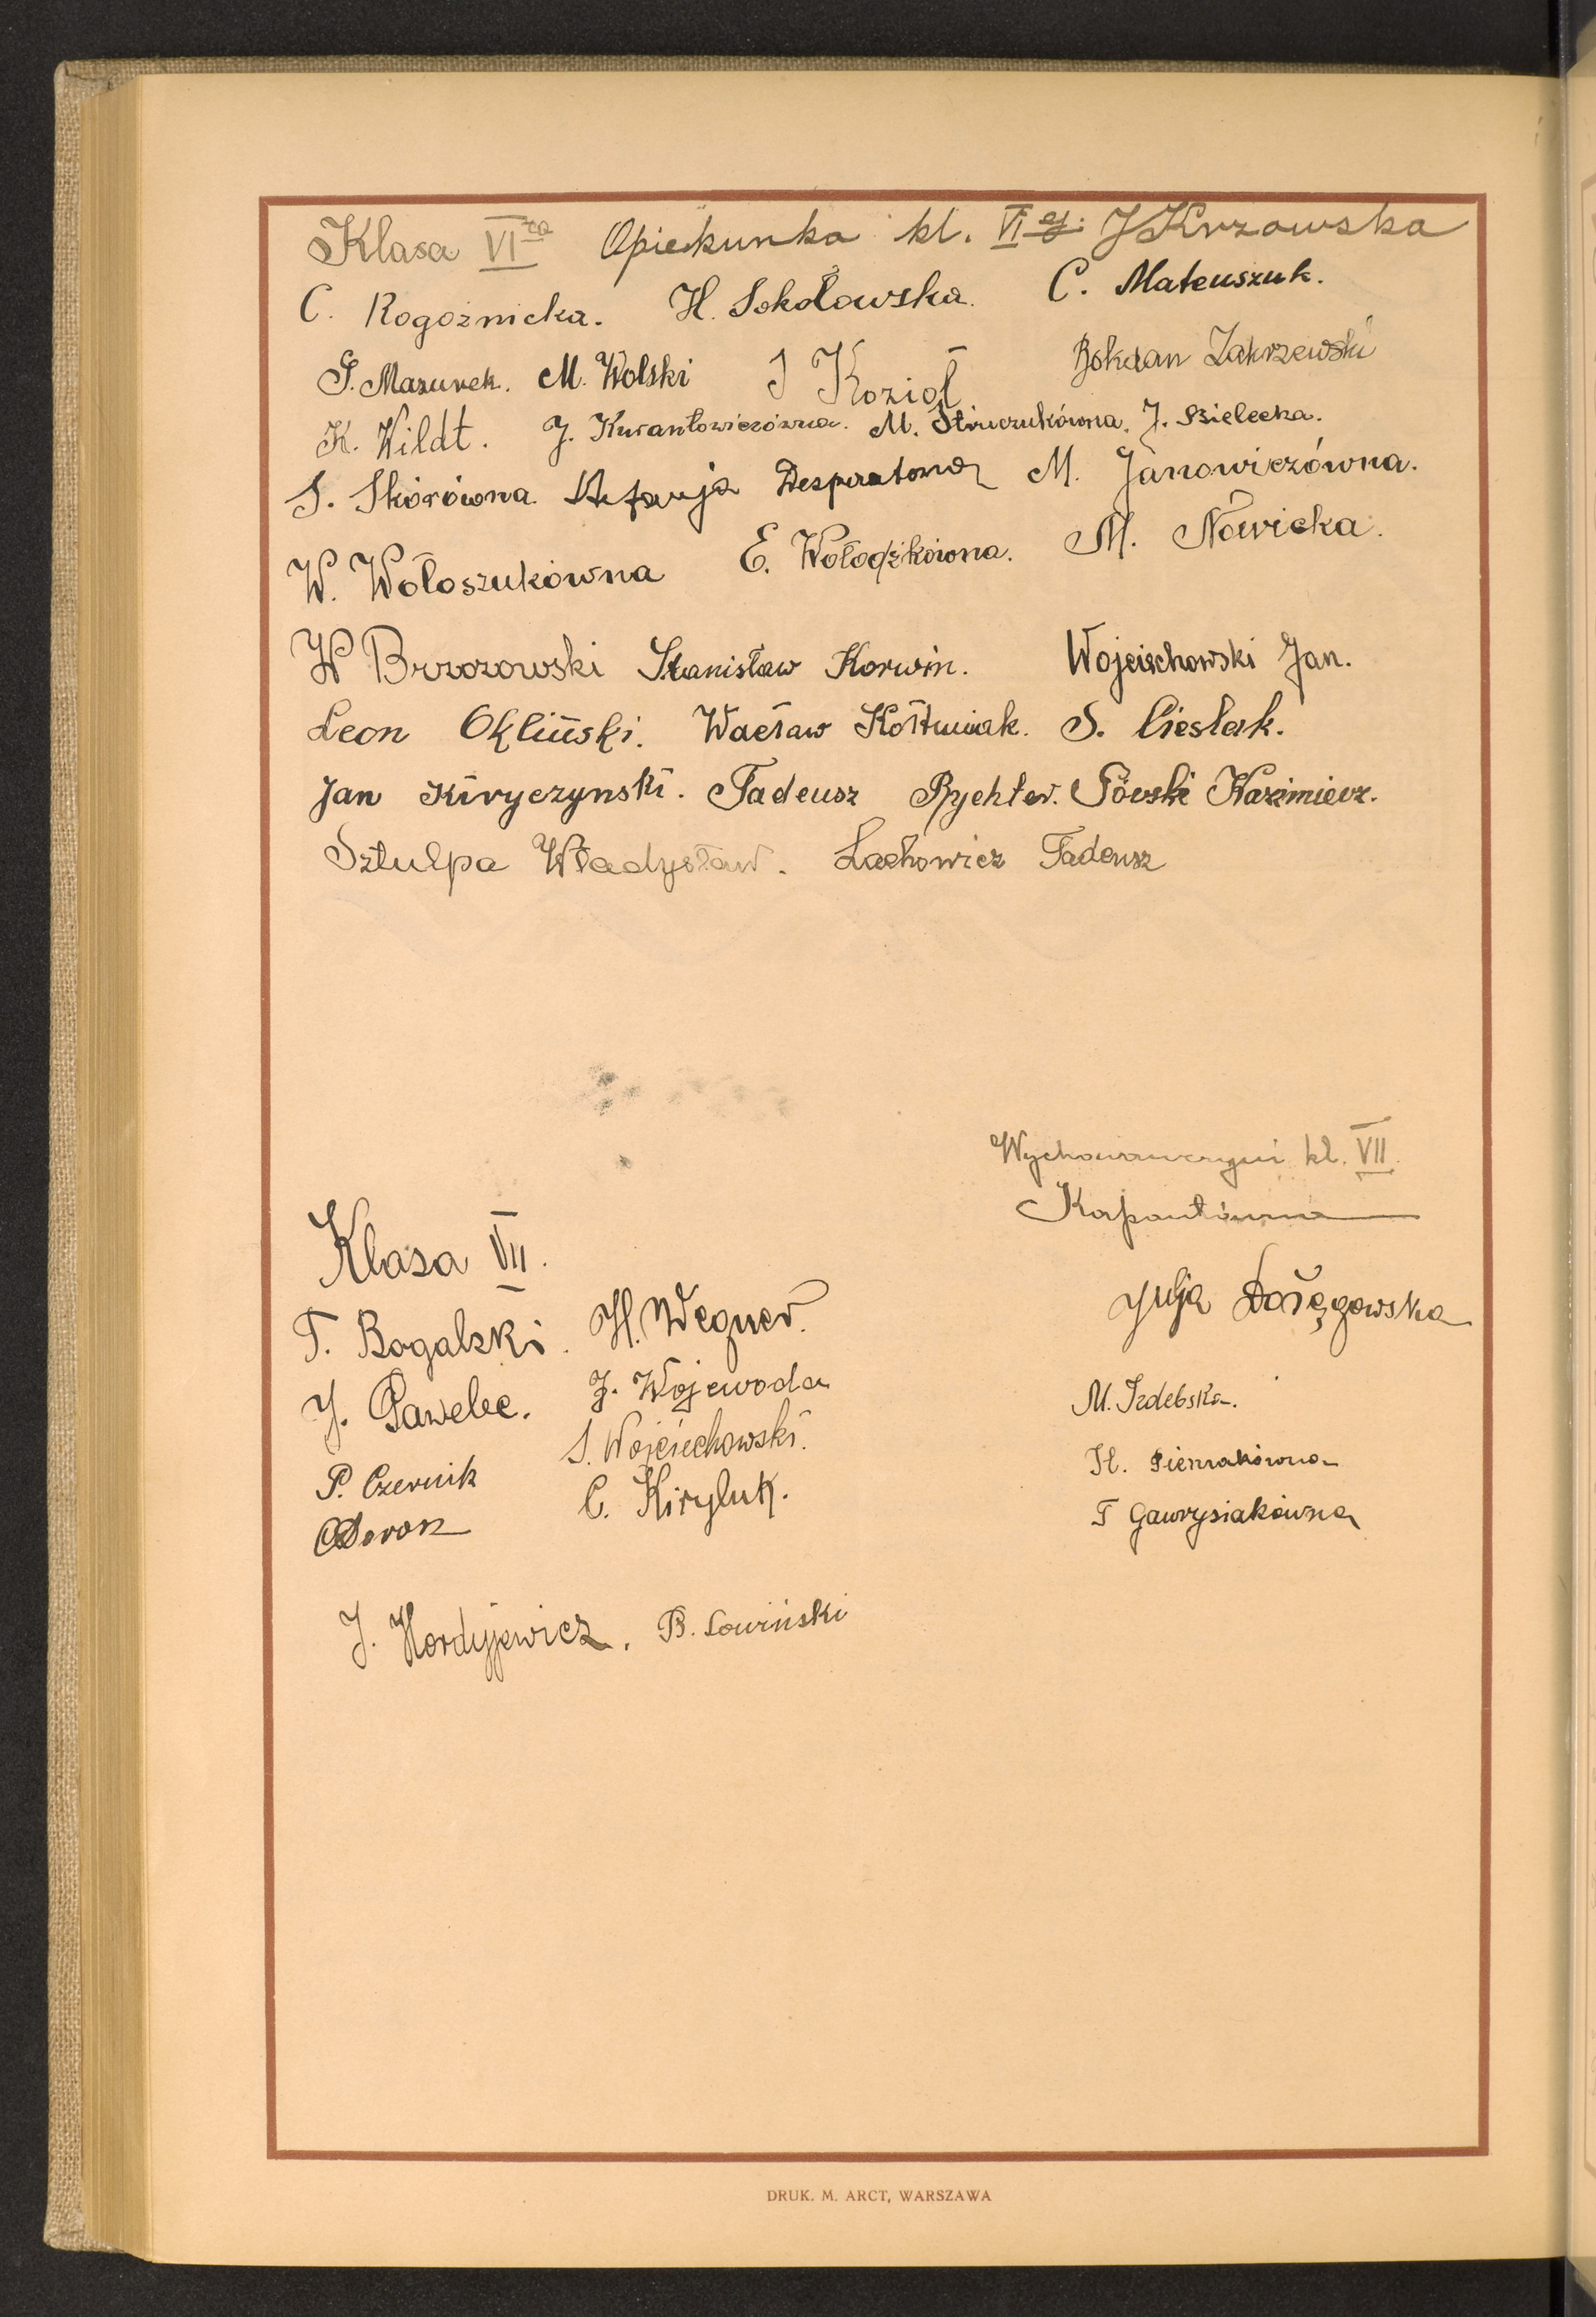 Klasa VI ta Opiekunka kl. VI ej. J Krzowska
C. Rogoźnicka. H. Sokołowska. C. Mateuszuk.
S. Mazurek. M. Wolski J Kozioł Bohdan Zakrzewski
K. Wildt. J. Kurantowiczówna. M. Struczukówna. J. Bielecka.
S. Skórówna. Stefanja Desperatówna M. Janowiczówna.
W. Wołoszukówna E. Wołodźkówna. M. Nowicka.
W Brzozowski Stanisław Korwin. Wojciechowski Jan.
Leon Okliński. Wacław Kołtuniak. S. Cieślak.
Jan Kiryczyński. Tadeusz Rychter. Górski Kazimierz.
Sztulpa Władysław. Lachowicz Tadeusz
Wychowawczyni kl. VII.
Kapautówna
Klasa VII.
T. Bogalski. H. Wegner. Julja Dołęgowska
J. Pawelec. J. Wojewoda M. Izdebska.
P. Czernik S. Wojciechowski. H. Pieniakówna
C. Kiryluk. T Gawrysiakówna
J. Hordyjewicz. B. Łowiński
DRUK. M. ARCT, WARSZAWA